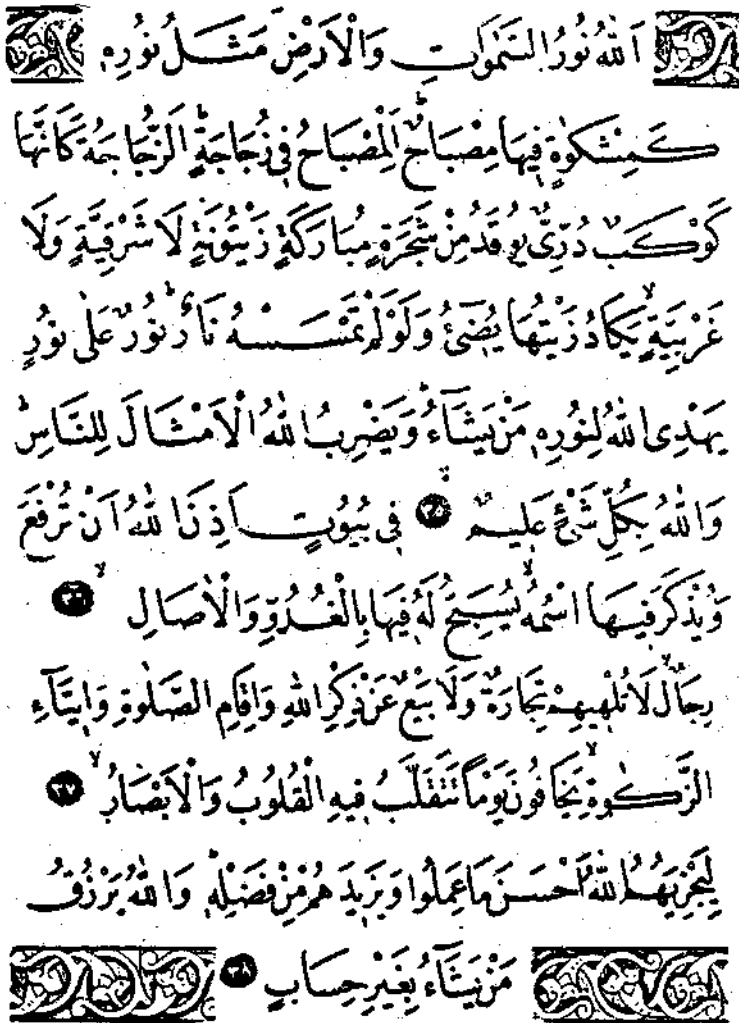 اَللّٰهُ نُوْرُ السَّمٰوٰتِ وَالْاَرْضِ ؕ مَثَلُ نُوْرِهٖ
كَمِشْكٰوةٍ فِيْهَا مِصْبَاحٌ ؕ اَلْمِصْبَاحُ فِيْ زُجَاجَةٍ ؕ اَلزُّجَاجَةُ كَاَنَّهَا
كَوْكَبٌ دُرِّيٌّ يُّوْقَدُ مِنْ شَجَرَةٍ مُّبَارَكَةٍ زَيْتُوْنَةٍ لَا شَرْقِيَّةٍ وَّلَا
غَرْبِيَّةٍ ۙ يَّكَادُ زَيْتُهَا يُضِيْٓءُ وَلَوْ لَمْ تَمْسَسْهُ نَارٌ ؕ نُوْرٌ عَلٰى نُوْرٍ
يَهْدِى اللّٰهُ لِنُوْرِهٖ مَنْ يَّشَآءُ ؕ وَيَضْرِبُ اللّٰهُ الْاَمْثَالَ لِلنَّاسِ ؕ
وَاللّٰهُ بِكُلِّ شَيْءٍ عَلِيْمٌ ۙ ﴿۳۵﴾ فِيْ بُيُوْتٍ اَذِنَ اللّٰهُ اَنْ تُرْفَعَ
وَيُذْكَرَ فِيْهَا اسْمُهٗ ۙ يُسَبِّحُ لَهٗ فِيْهَا بِالْغُدُوِّ وَالْاٰصَالِ ۙ ﴿۳۶﴾
رِجَالٌ ۙ لَّا تُلْهِيْهِمْ تِجَارَةٌ وَّلَا بَيْعٌ عَنْ ذِكْرِ اللّٰهِ وَاِقَامِ الصَّلٰوةِ وَاِيْتَآءِ
الزَّكٰوةِ ۙ يَخَافُوْنَ يَوْمًا تَتَقَلَّبُ فِيْهِ الْقُلُوْبُ وَالْاَبْصَارُ ۙ ﴿۳۷﴾
لِيَجْزِيَهُمُ اللّٰهُ اَحْسَنَ مَا عَمِلُوْا وَيَزِيْدَهُمْ مِّنْ فَضْلِهٖ ؕ وَاللّٰهُ يَرْزُقُ
مَنْ يَّشَآءُ بِغَيْرِ حِسَابٍ ﴿۳۸﴾